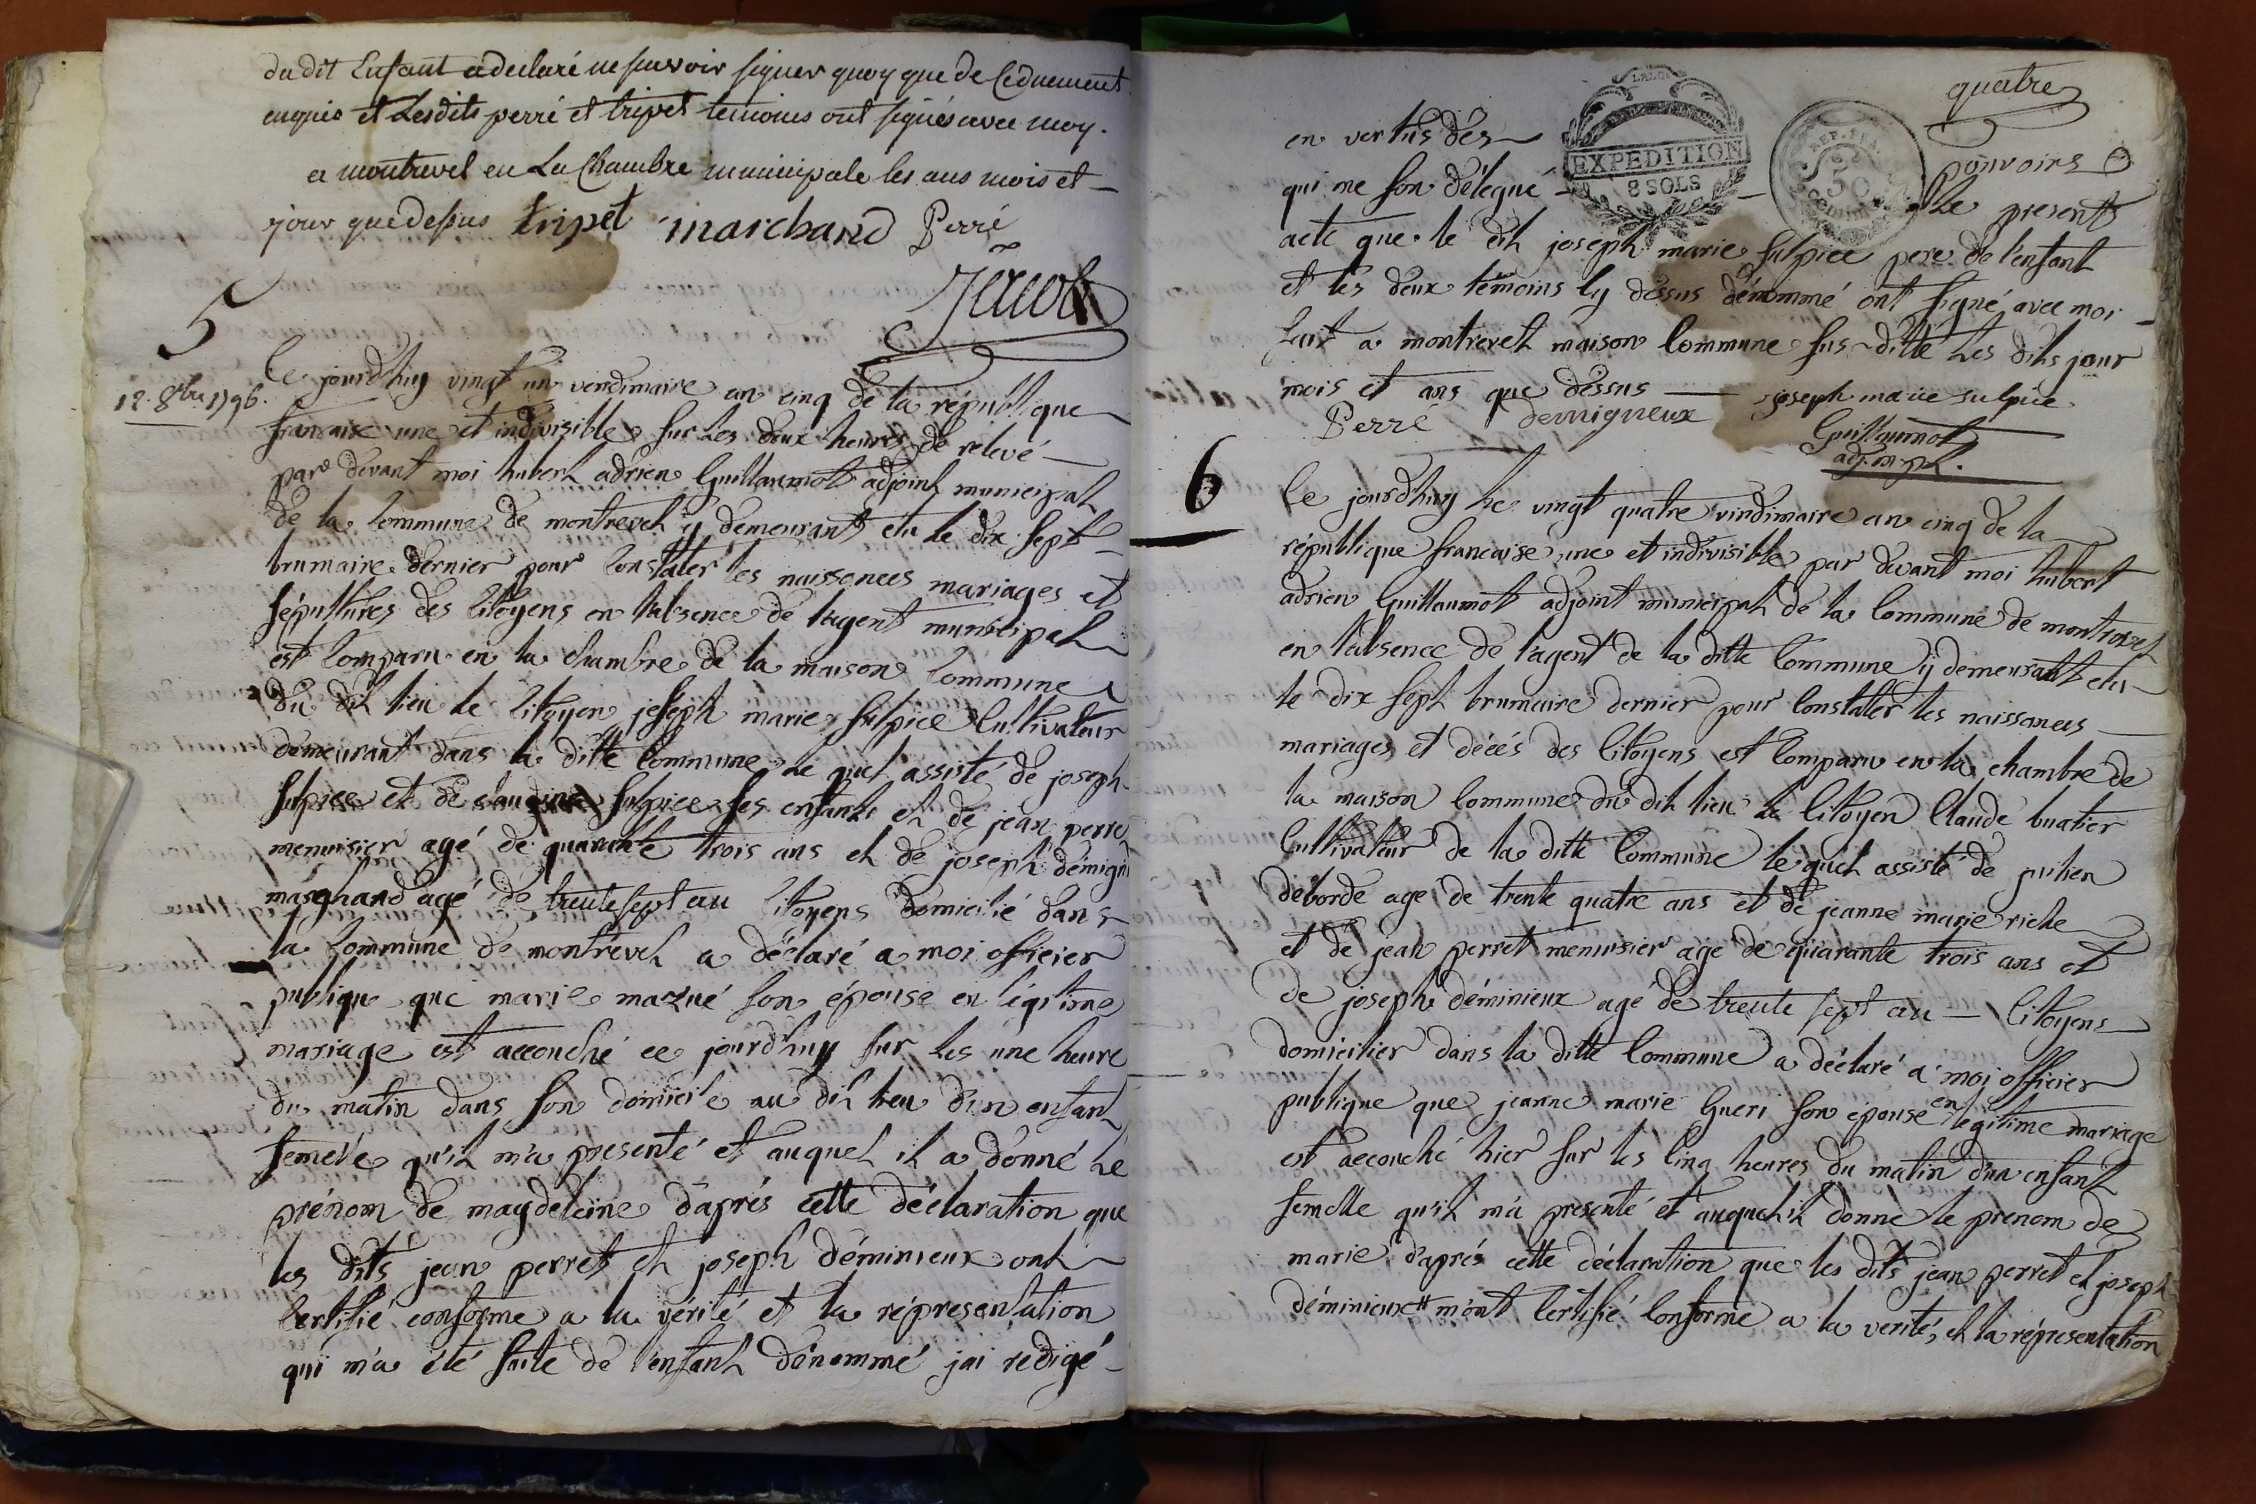 du dit Enfant a declaré ne sçavoir signer quoy que de Ce duement
enquis et Lesdits perré et tripet temoins ont signés avec moy.
a montrevel en La Chambre municipale les ans mois et
jour que dessus tripet marchand Perré
5
12. 8bre 1796.
Ce jourd'huy vingt un vendimaire an cinq de la république
francaise une et indivisible sur les deux heures de relevé
par devant moi hubert adrien Guillaumot adjoint municipal
de la Commune de montrevel y demeurant élu le dix sept
brumaire dernier pour Constater les naissances mariages et
sépultures des Citoyens en l'absence de l'agent municipal
est Comparu en la chambre de la maison Commune
du dit lieu le Citoyen joseph marie sulpice Cultivateur
demeurant dans la ditte Commune le quel assisté de joseph
sulpice et de sulpice ses enfants et de jean perre
menuisier agé de quarante trois ans et de joseph démign
marchand agé de trente sept an Citoyens domicilié dans
la Commune de montrevel a déclaré a moi officier
publique que marie mazué son épouse en légitime
mariage est accouché ce jourd'huy sur les une heure
du matin dans son domicile au dit lieu d'un enfant
femelle qu'il m'a presenté et auquel il a donné le
prénom de magdeleine d'aprés cette déclaration que
les dits jean perret et joseph déminieux ont
Certifié conforme a la vérité et la répresentation
qui m'a été faite de l'enfant dénommé jai redigé
quatre
LA LOI
EXPEDITION
8 SOLS
REP. FRA.
50
centim
en vertus dés pouvoirs
qui me son délegué le present
acte que le dit joseph marie sulpice pere de l'enfant
et lés deux témoins Cy dessus dénommé ont signé avec moi
fait a montrevel maison Commune sus-ditte les dits jour
mois et ans que dessus joseph marie sulpice
Perré demigneux
Guillaumot
adj. m.pal.
6
Ce jourd'huy le vingt quatre vindimaire an cinq de la
république francaise une et indivisible par devant moi hubert
adrien Guillaumot adjoint municipal de la Commune de montrevel
en l'absence de l'agent de la ditte Commune y demeurant élu
le dix sept brumaire dernier pour Constater les naissances
mariages et décés des Citoyens est Comparu en la chambre de
la maison Commune du dit lieu le Citoyen Claude buatier
Cultivateur de la ditte Commune le quel assisté de julien
déborde agé de trente quatre ans et de jeanne marie riche
et de jean perret menuisier agé de quarante trois ans et
de joseph déminieux agé de trente sept an Citoyens
domicilier dans la ditte Commune a déclaré a moi officier
publique que jeanne marie Gueri son épouse en légitime mariage
est accouché hier sur les Cinq heures du matin d'un enfant
femelle qu'il m'a presenté et auquel il donne le prenom de
marie d'aprés cette déclaration que les dits jean perret et joseph
déminieux m'ont Certifié Conforme a la verité, et la répresentation